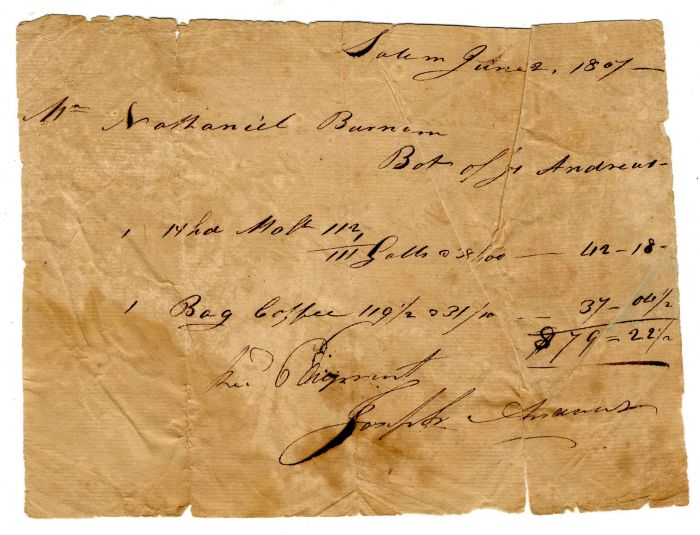 Salem June 2, 1807 —
Mr Nathaniel Burnem
Bot of Js Andrews
1 Hhd Mols 112
1
111 Galls @ 38/100 — 42 - 18 -
1 Bag Coffee 119 1/2 @ 31/100 — 37 - 04 1/2
$ 79 = 22 1/2
Recd Payment
Joseph Andrews